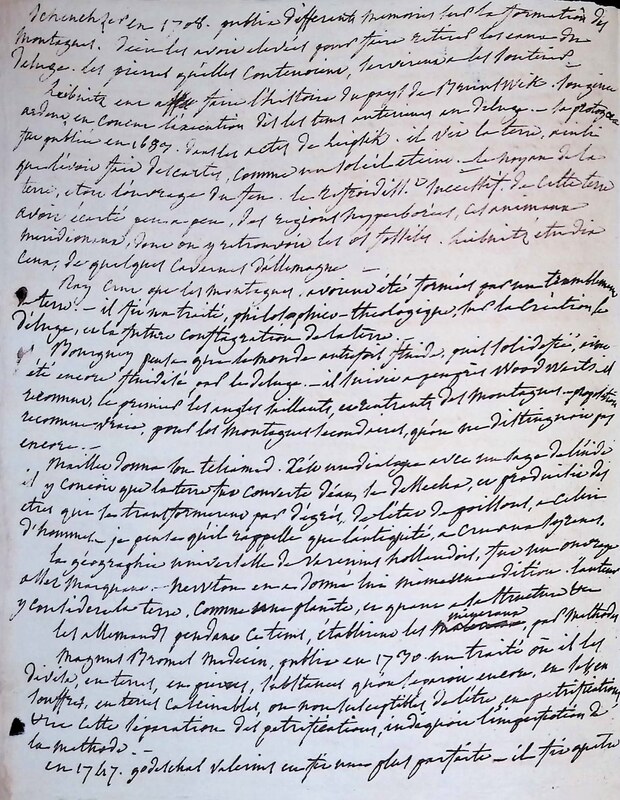 Scheuchzer en 1708. publia différents mémoires sur la formation des
Montagnes. Dieu les avoit élevées pour faire retirer les eaux du
Déluge. les pierres qu'elles contenoient, servirent à les soutenir
Leibnitz eut à faire l'histoire du pays de Brunswik. son génie
ardent, en conçut l'exécution dès les tems antérieurs au déluge — la protogée
fut publiée en 1683. dans les actes de Leipsik. il vit la terre, ainsi
que l'avoit fait descartes, comme un soleil éteint. — le noyau de la
terre, étoit l'ouvrage du feu. le refroidisst successif de cette terre
avoit écarté peu a peu, des régions hyperborées, ces animaux
méridionaux, dont on y retrouvoit les os fossiles. Leibnitz étudia
ceux, de quelques cavernes d'allemagne —
Ray crut que les montagnes avoient été formées par un tremblement
de terre. — il fit un traité, philosophico-théologique, sur la création, le
Déluge, et la future conflagration de la terre.
Bourguet pensa que le monde autrefois fluide, puis solidifié, avoit
été encore fluidifié par le déluge. — il suivit a peu près Woodward. il
reconnut, le premier les angles saillants, et rentrants des montagnes — proposition
reconnue vraie, pour les montagnes secondaires, qu'on ne distinguoit pas
encore. —
Maillet donna son teliamed. C'est un dialogue avec un sage de l'inde
il y conçoit que la terre fut couverte d'eau, se dessécha, et produisit des
etres qui se transformerent par dégrés, de l'état de poissons, a celui
d'hommes — je pense qu'il rappelle que l'antiquité, a cru aux syrenes.
la géographie universelle de Varenius hollandois, fut un ouvrage
assez marquant. Newton en a donné lui même une édition. l'auteur
y considère la terre, comme une planète, et quant a sa structure &c
les allemands pendant ce tems, établirent les mineraux, par méthodes
Magnus Bromel medecin, publia en 1730 un traité où il les
divisa, en terres, en pierres, substances qu'on separoit encore, en sels, en
souffres, en terres calcinables, ou non susceptibles de l'être, en petrifications,
&c cette séparation des petrifications, indique l'imperfection de
la methode. —
en 1747. godeschal Valerius en fit une plus parfaite — il fit quatre